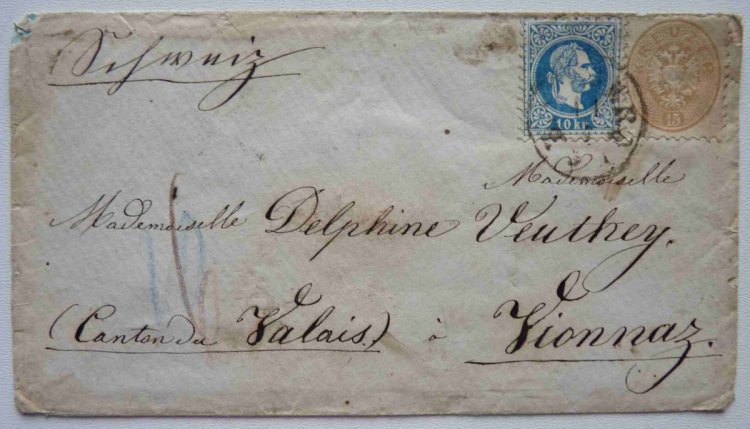 Schweiz
10 kr
15
Mademoiselle
Mademoiselle Delphine Veuthey.
(Canton du Valais.) à Vionnaz.